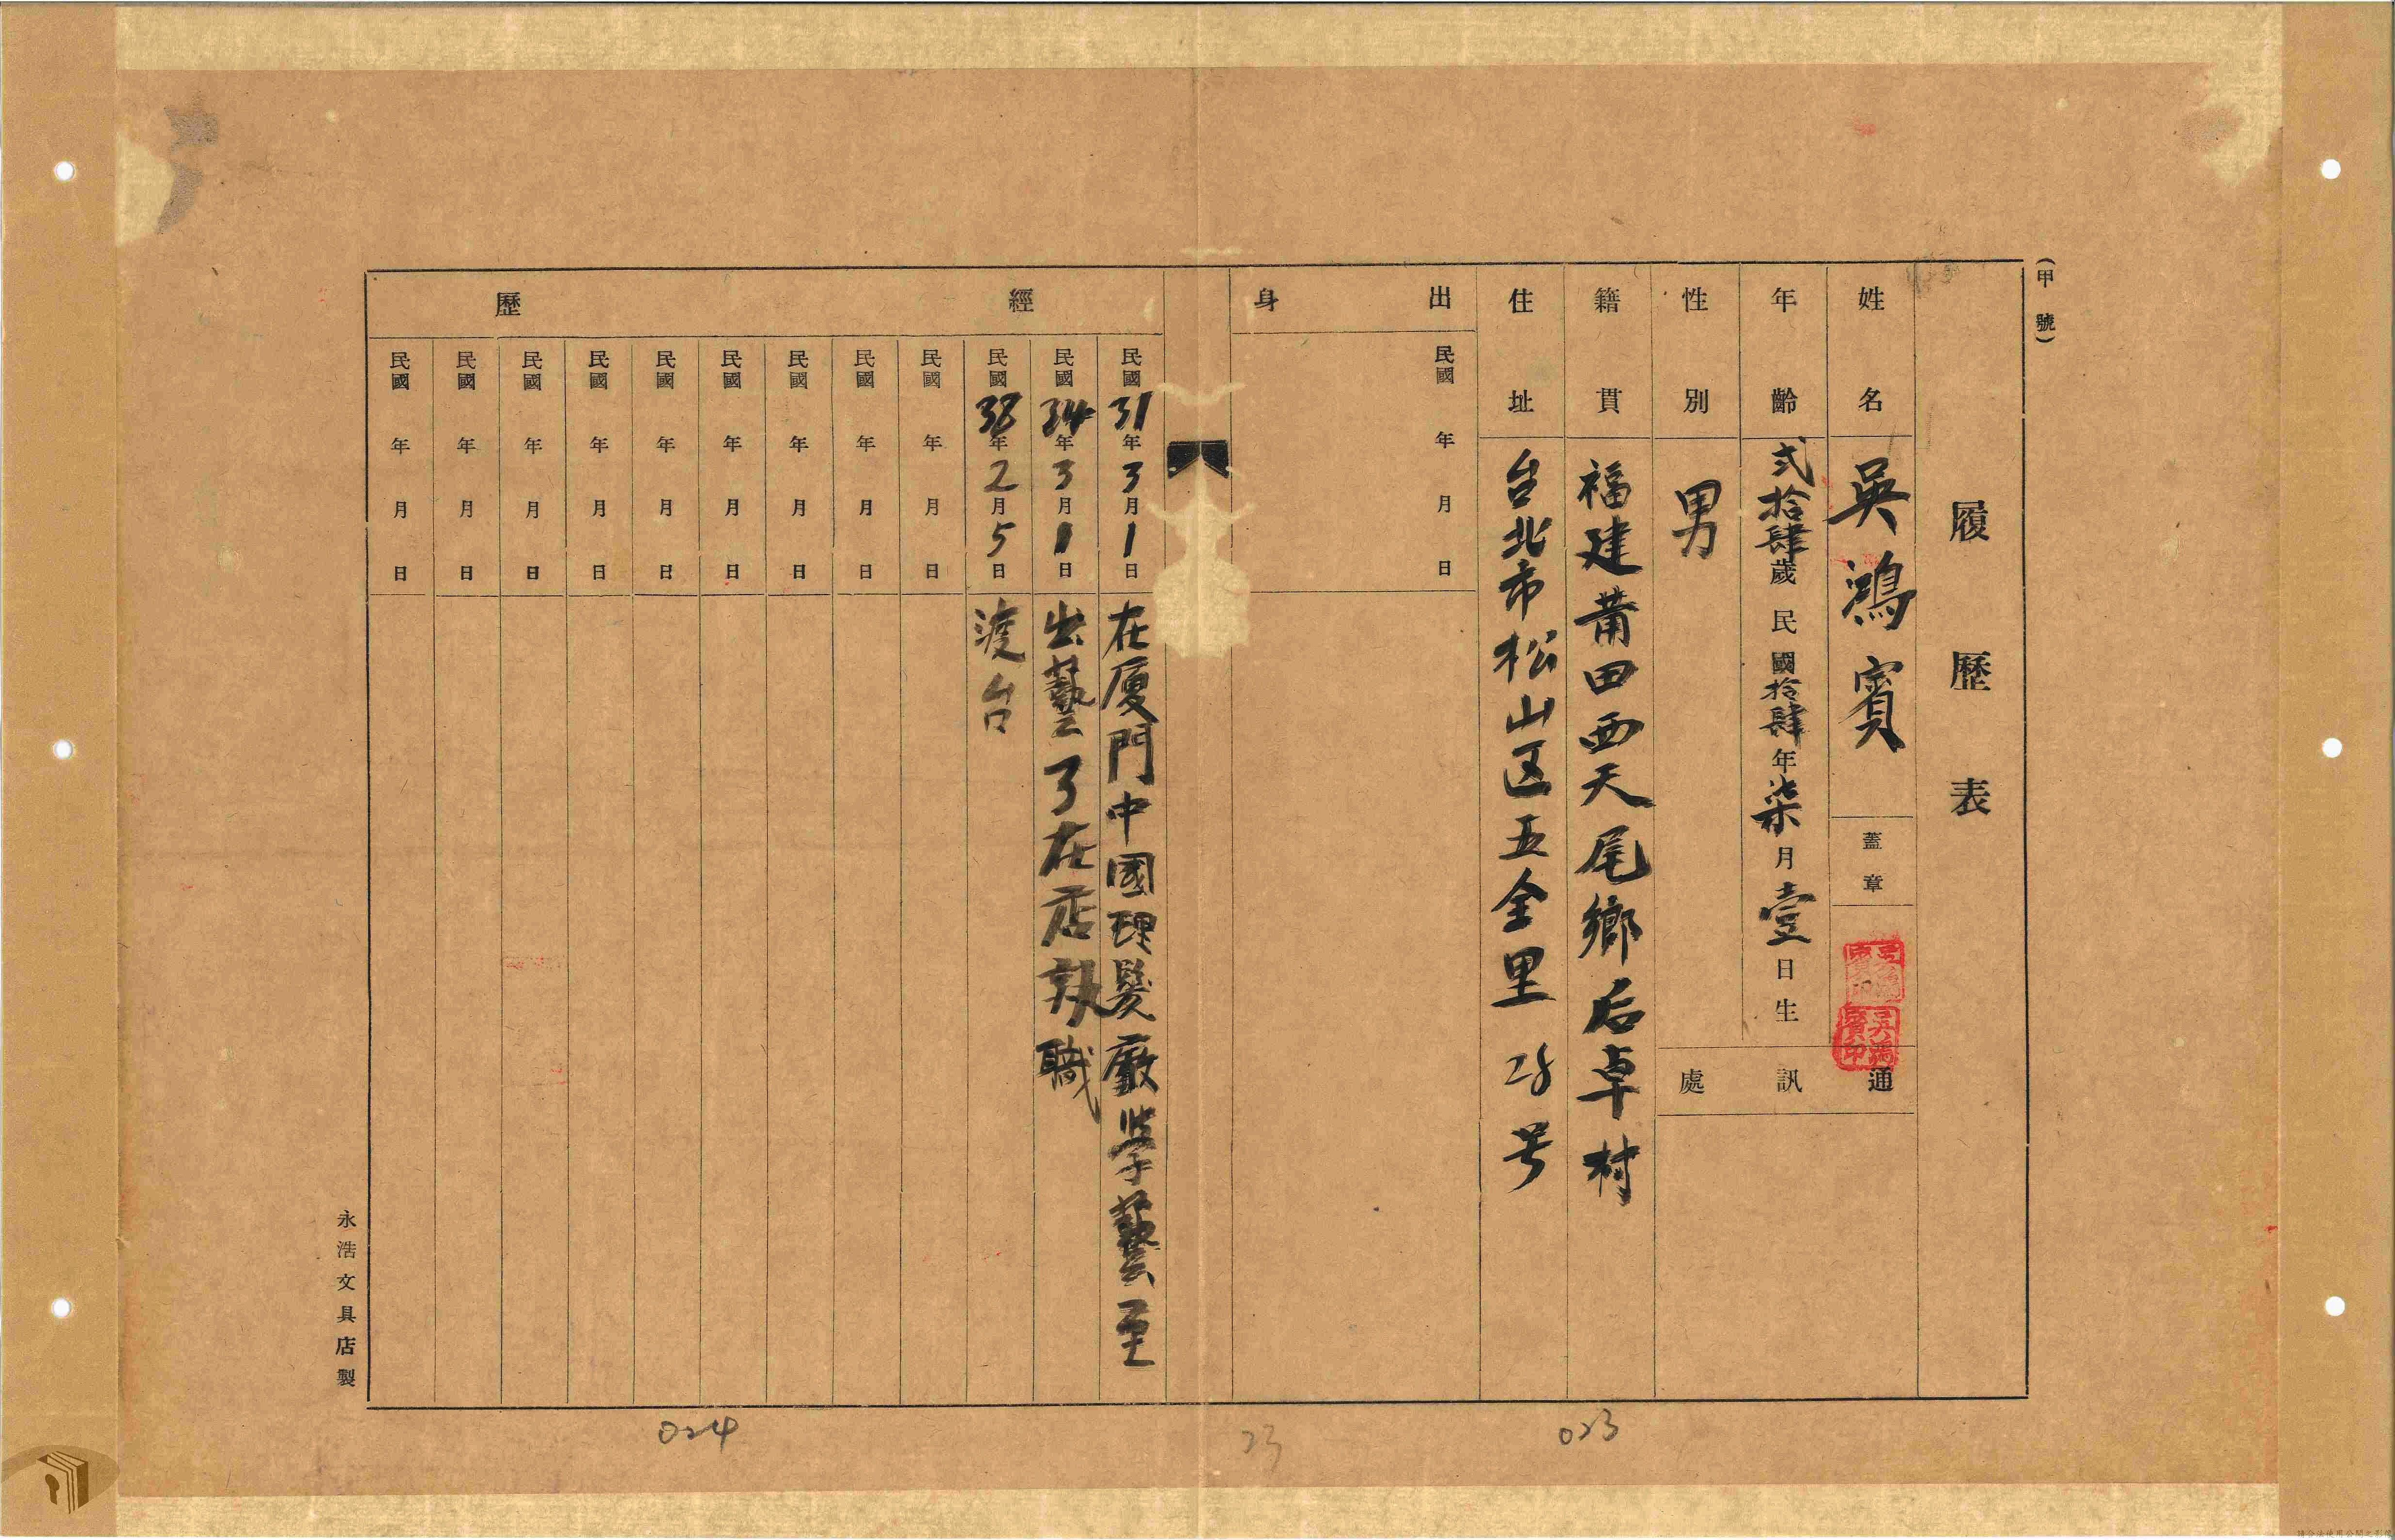 (甲號)
履歷表
姓名 吳鴻賓 蓋章
吳鴻賓印
通訊處
年齡 弍拾肆歲 民國拾肆年柒月壹日生
性別 男
籍貫 福建莆田西天尾鄉后卓村
住址 台北市松山区五全里28号
出身
民國 年 月 日
經歷
民國31年3月1日 在厦門中國理髮廳學藝至
民國34年3月1日 出藝了在店執職
民國38年2月5日 渡台
民國 年 月 日
民國 年 月 日
民國 年 月 日
民國 年 月 日
民國 年 月 日
民國 年 月 日
民國 年 月 日
民國 年 月 日
民國 年 月 日
永浩文具店製
023
23
024